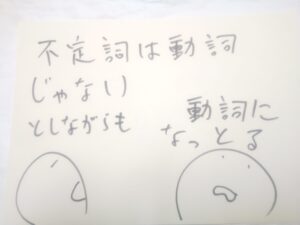 不定詞は動詞
じゃない
としながらも
動詞に
なっとる